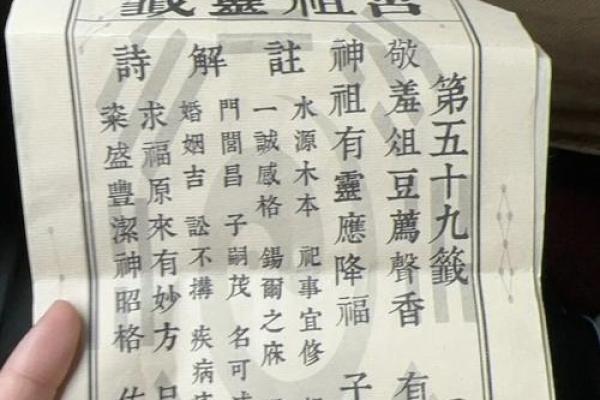 祖靈籤
第五十九籤
敬羞俎豆薦聲香 有
神祖有靈應降福 子
註解
水源木本 祀事宜修
一誠感格 錫爾之庥
門閭昌 子嗣茂 名可
婚姻吉 訟不搆 疾病
詩
求福原來有妙方
粢盛豐潔神昭格